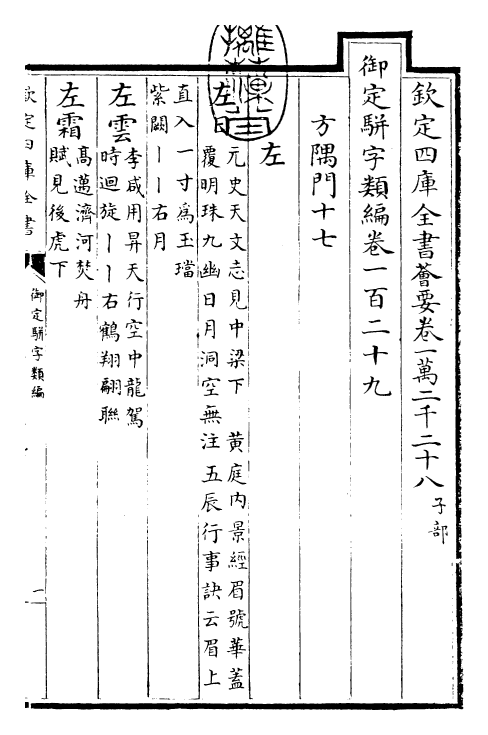 欽定四庫全書薈要卷一萬二千二十八 子部
御定駢字類編卷一百二十九
方隅門十七
左
左日 元史天文志見中梁下 黃庭內景經眉號華蓋
覆明珠九幽日月洞空無注五辰行事訣云眉上
直入一寸為玉璫
紫闕丨丨右月
左雲 李咸用昇天行空中龍駕
時迴旋丨丨右鶴翔翩聯
左霜 高邁濟河焚舟
賦見後虎下
欽定四庫全書
御定駢字類編
一